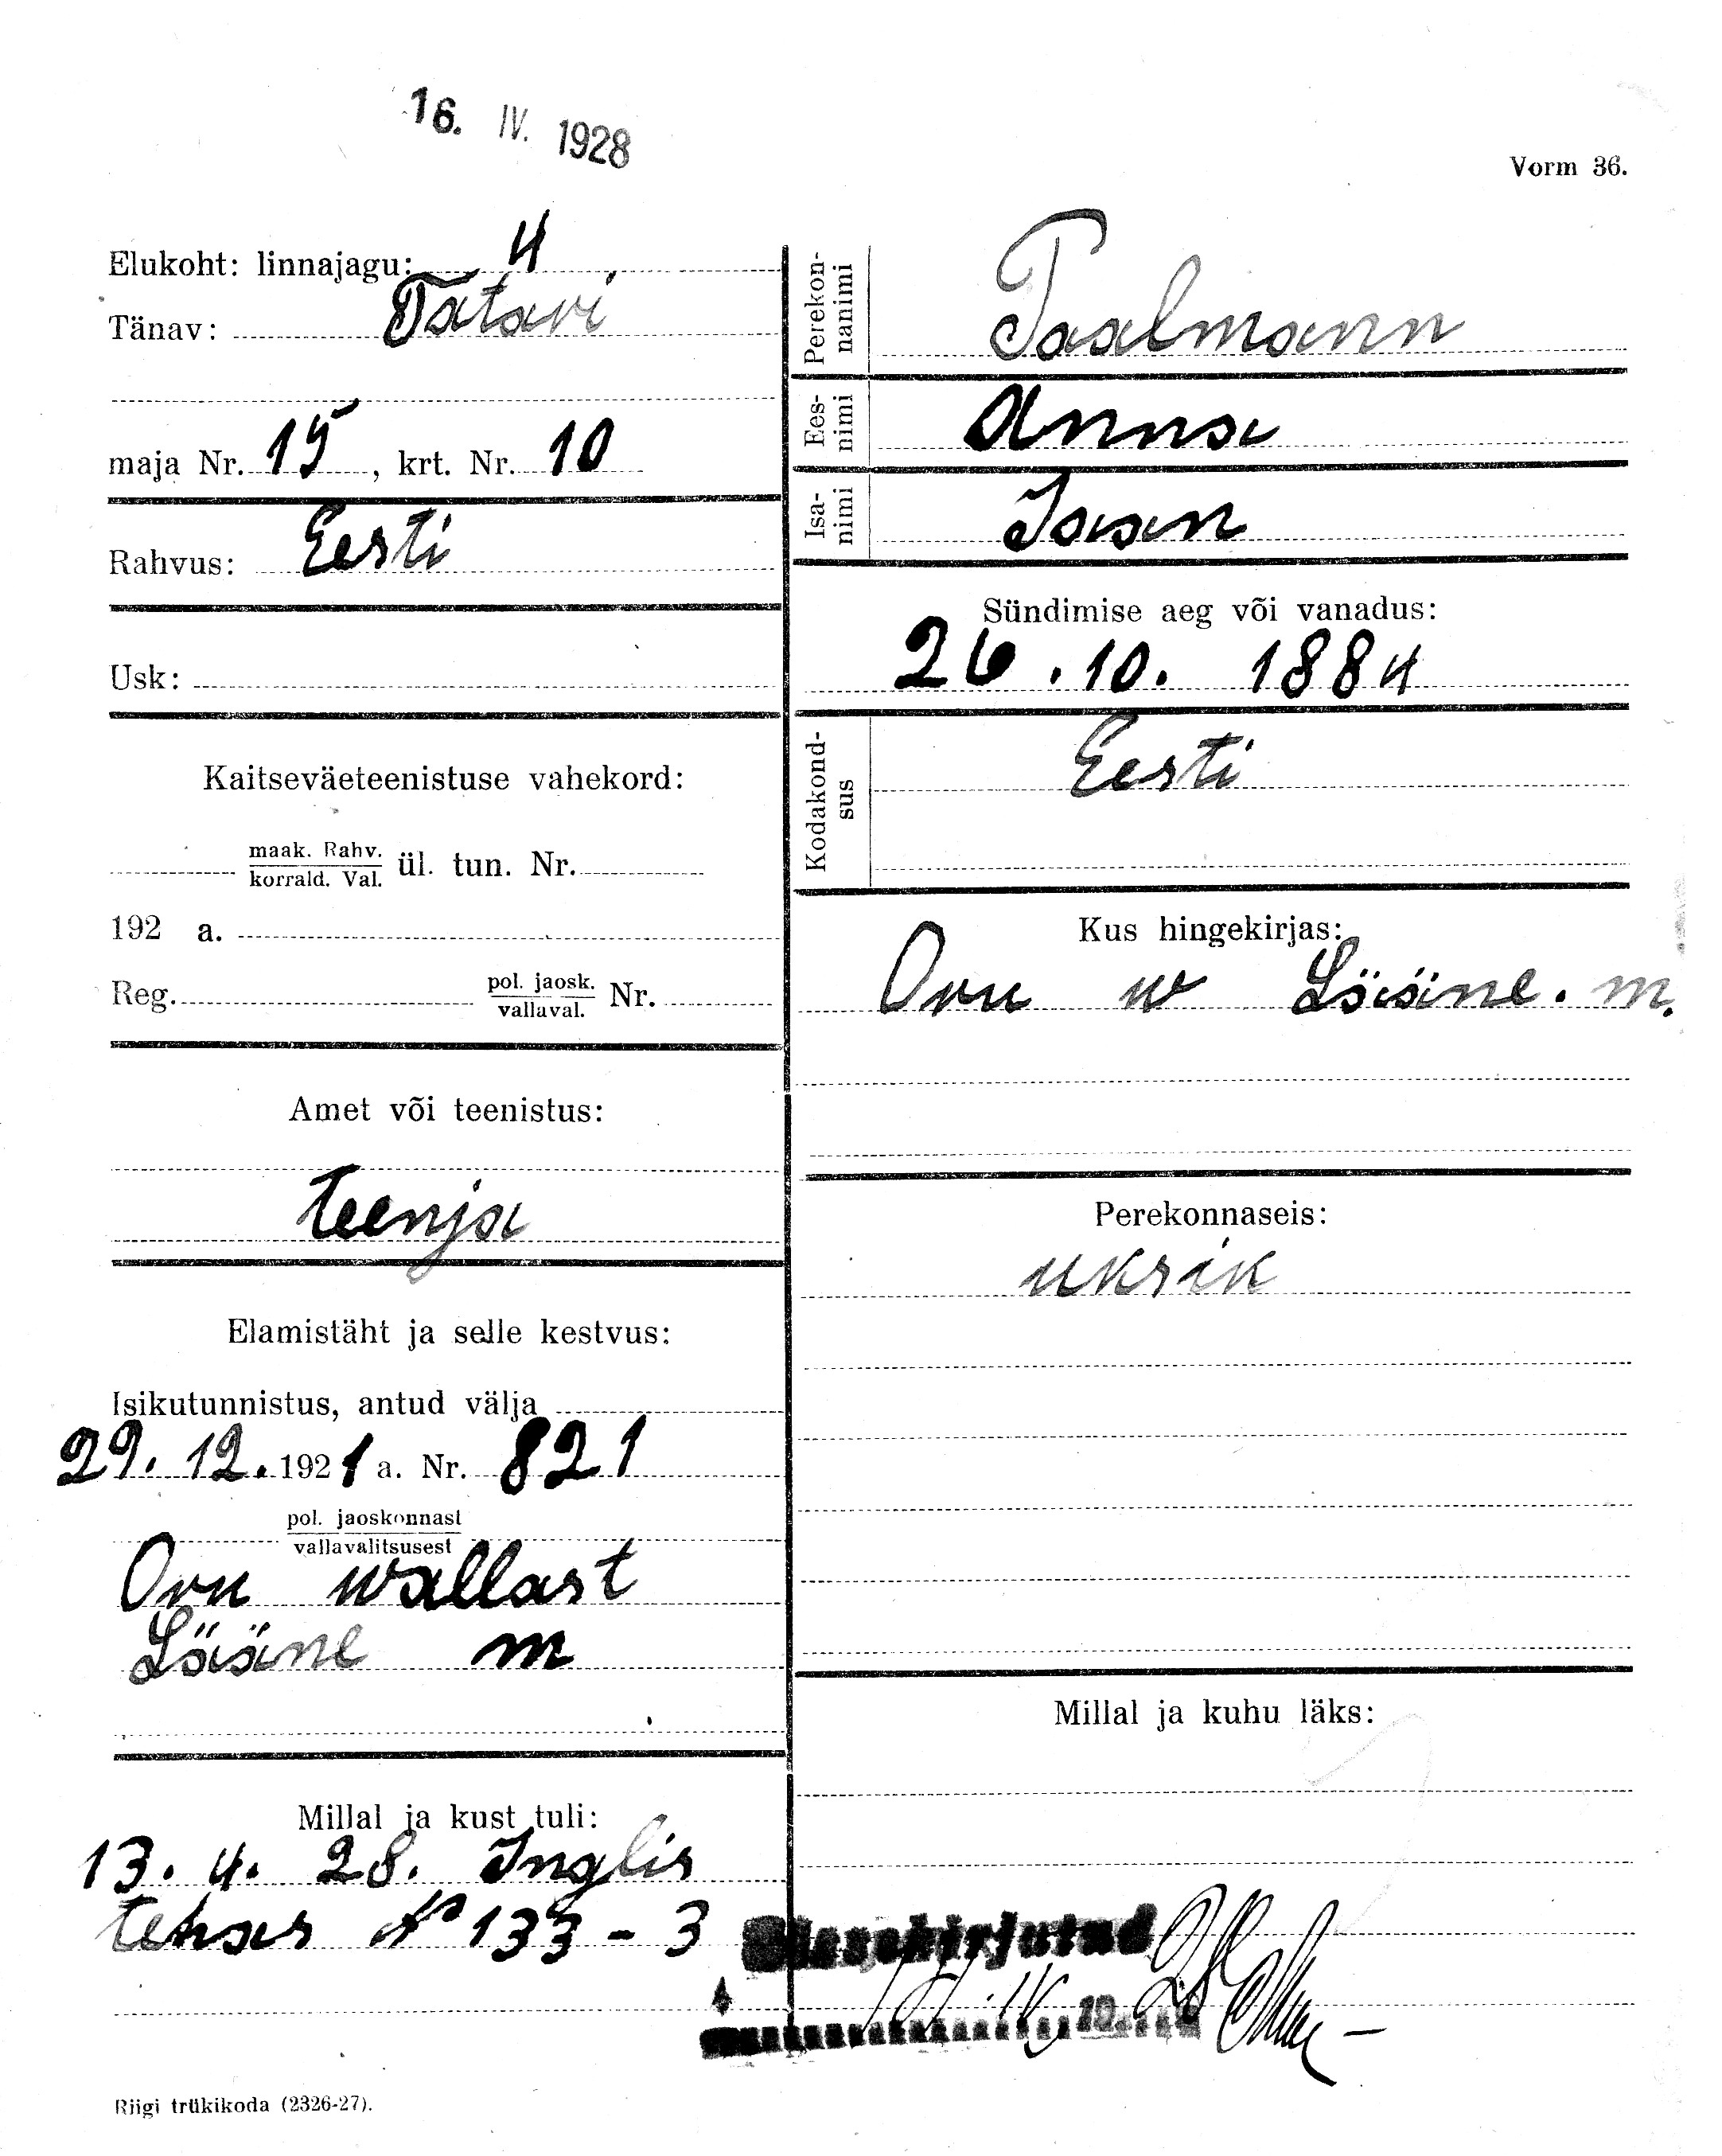 16. IV. 1928
Vorm 36.
Elukoht: linnajagu: 4
Tänav: Tatari
maja Nr. 15, krt. Nr. 10
Rahvus: Eesti
Usk:
Kaitseväeteenistuse vahekord:
maak. Rahv.
korrald. Val.
ül. tun. Nr.
192 a.
Reg. pol. jaosk. Nr.
vallaval.
Amet või teenistus:
teenja
Elamistäht ja selle kestvus:
Isikutunnistus, antud välja
29. 12. 1921 a. Nr. 821
pol. jaoskonnast
vallavalitsusest
Oru wallast
Lääne m
Millal ja kust tuli:
13. 4. 28. Inglis
tehas № 133 - 3
Perekon-
nanimi
Taalmann
Ees-
nimi
Anna
Isa-
nimi
Jaan
Sündimise aeg või vanadus:
26. 10. 1884
Kodakond-
sus
Eesti
Kus hingekirjas:
Oru w Lääne. m.
Perekonnaseis:
uksik
Millal ja kuhu läks:
Sissekirjutud
Riigi trükikoda (2326-27).